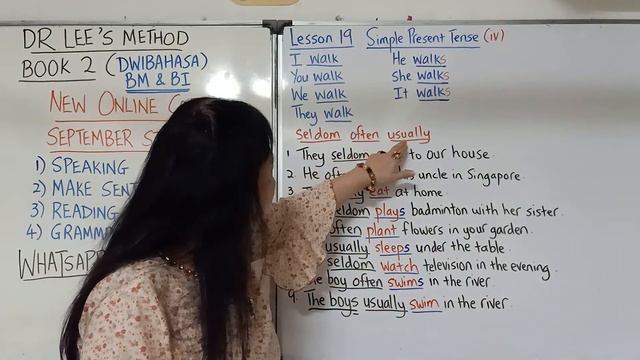 DR LEE'S METHOD
BOOK 2 (DWIBAHASA)
BM & BI
NEW ONLINE
SEPTEMBER
1) SPEAKING
2) MAKE
3) READING
4)
WHATSAPP
Lesson 19 Simple Present Tense (IV)
I walk He walks
You walk She walks
We walk It walks
They walk
Seldom often usually
1. They seldom to our house.
2. He uncle in Singapore.
3. eat at home.
seldom plays badminton with her sister.
often plant flowers in your garden.
usually sleeps under the table.
seldom watch television in the evening.
boy often swims in the river.
9. The boys usually swim in the river.